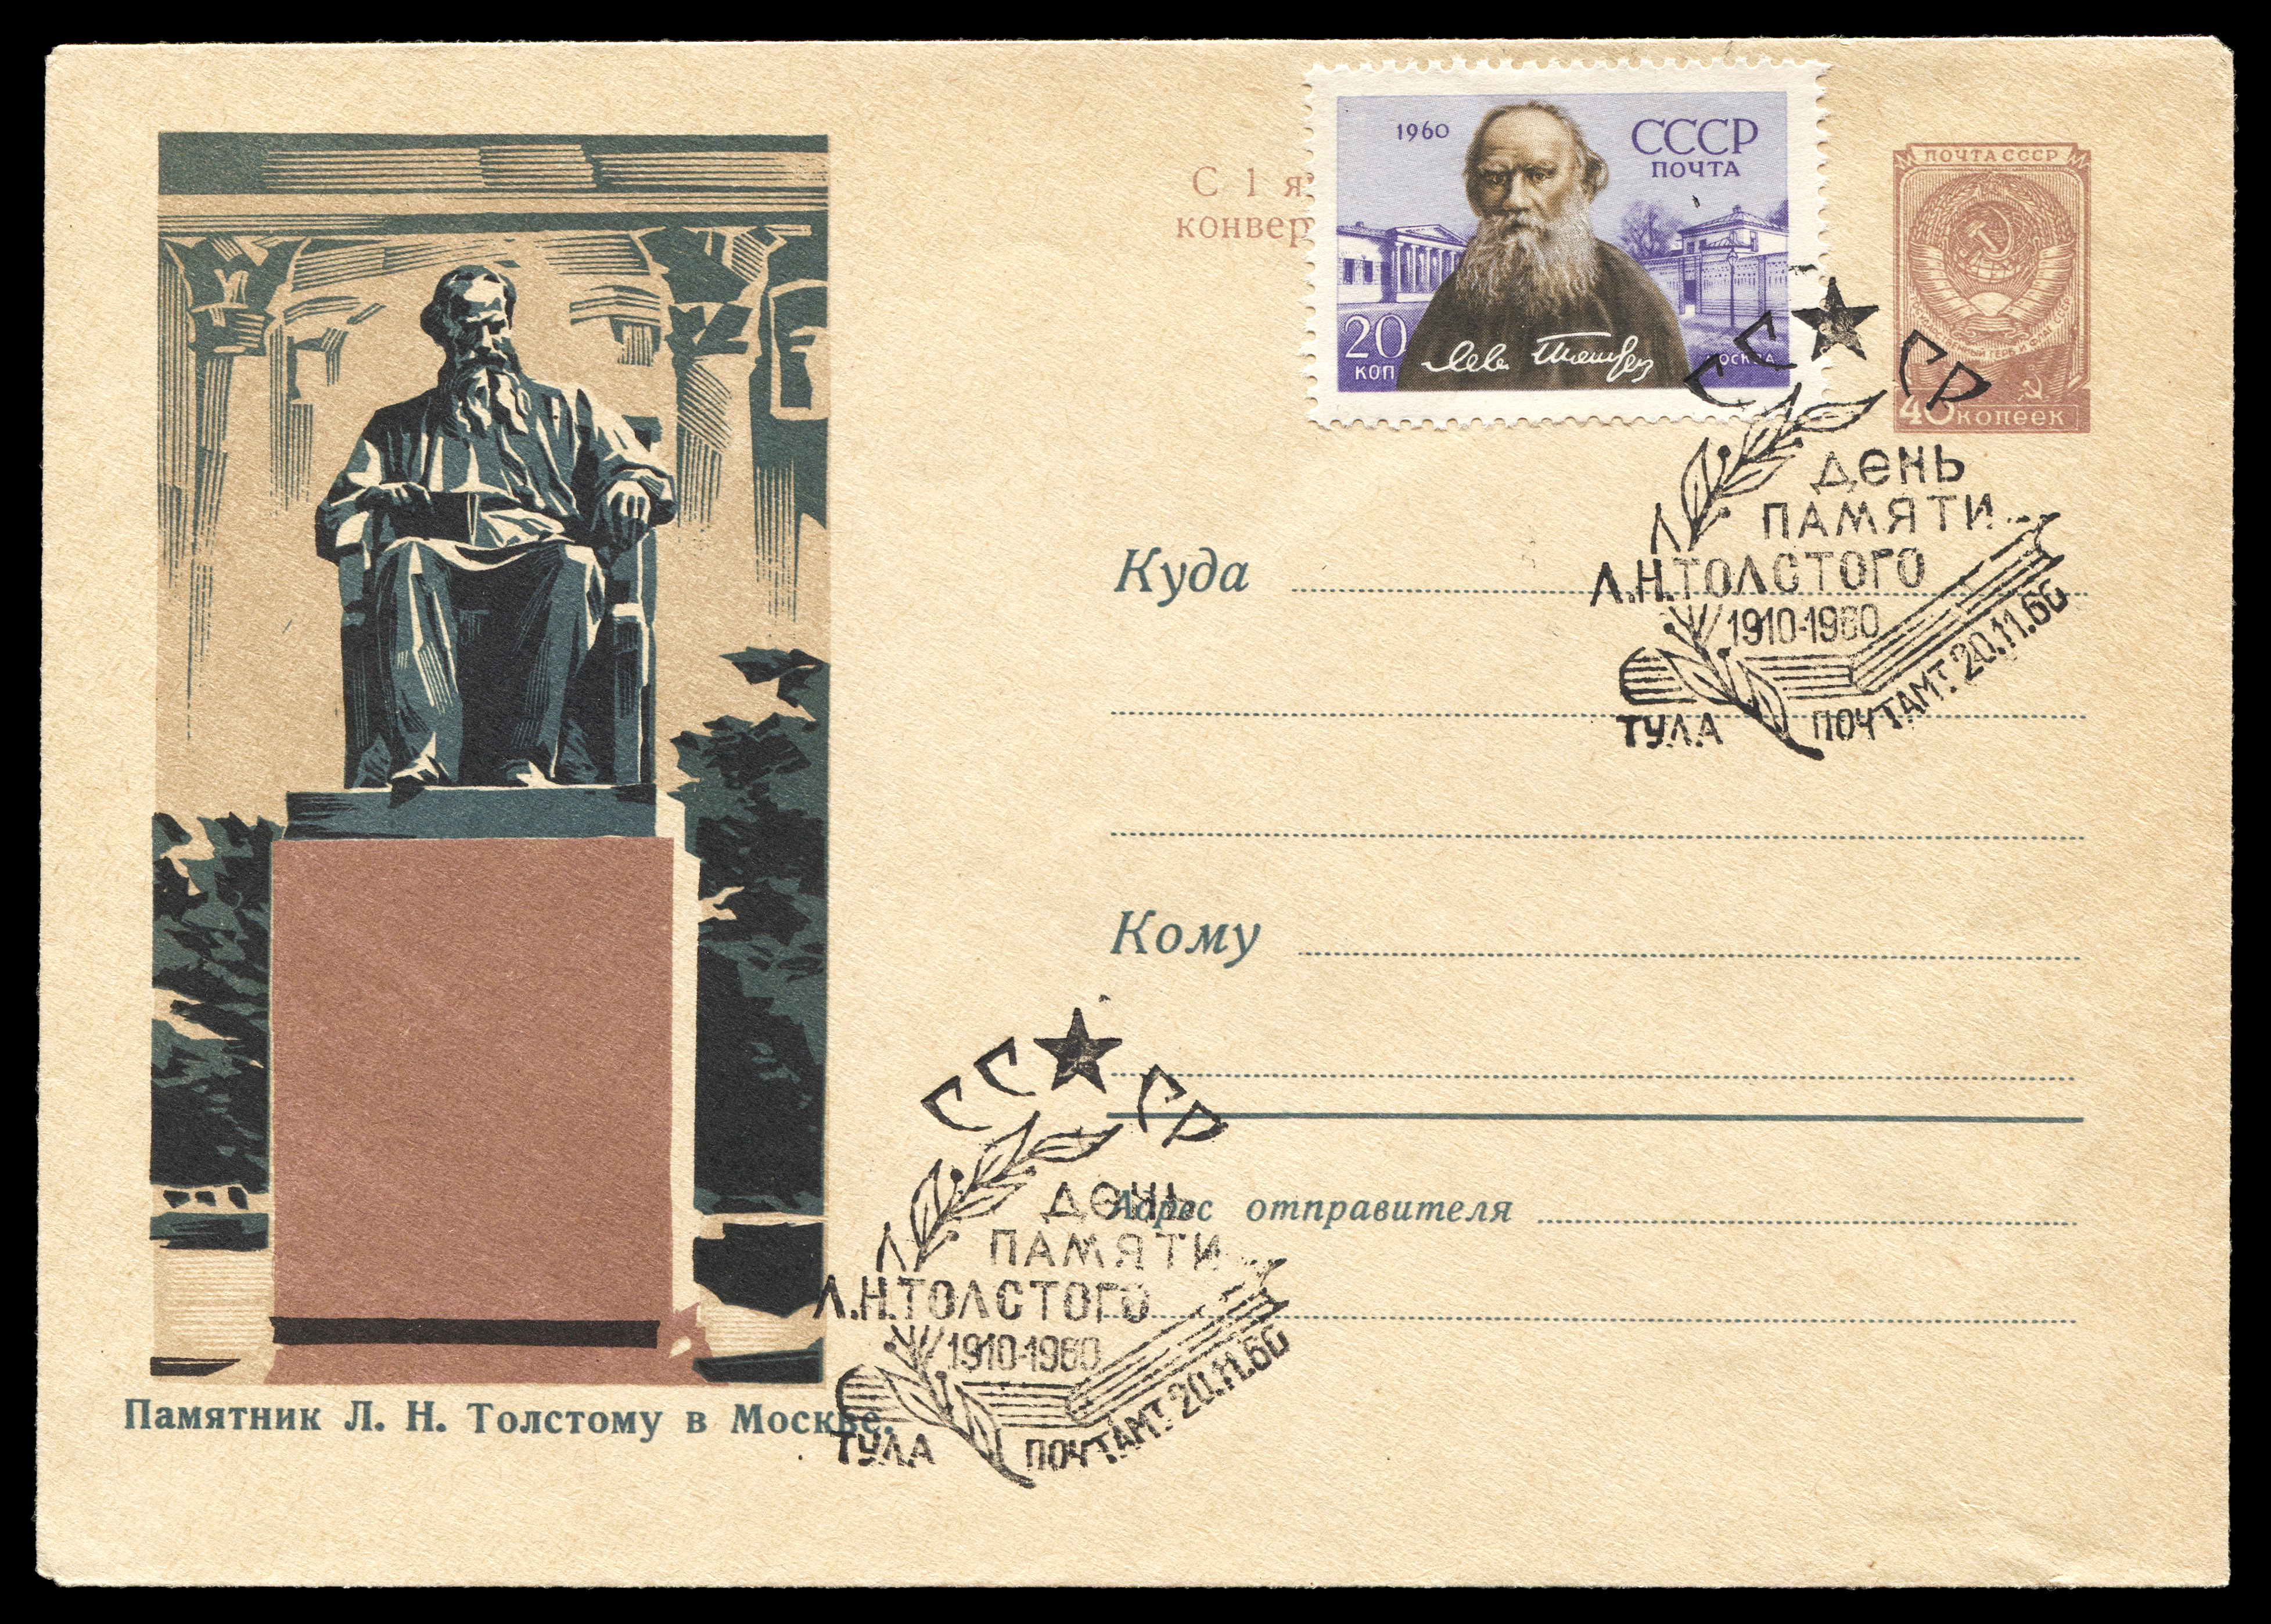 С 1 я
конвер
1960
СССР
ПОЧТА
20
КОП
Лев Толстой
МОСКВА
ПОЧТА СССР
40 копеек
СССР
ДЕНЬ
ПАМЯТИ
Л.Н.ТОЛСТОГО
1910-1960
ТУЛА ПОЧТАМТ. 20.11.60
Куда
Кому
СССР
ДЕНЬ
ПАМЯТИ
Л.Н.ТОЛСТОГО
1910-1960
ТУЛА ПОЧТАМТ. 20.11.60
Адрес отправителя
Памятник Л. Н. Толстому в Москве.